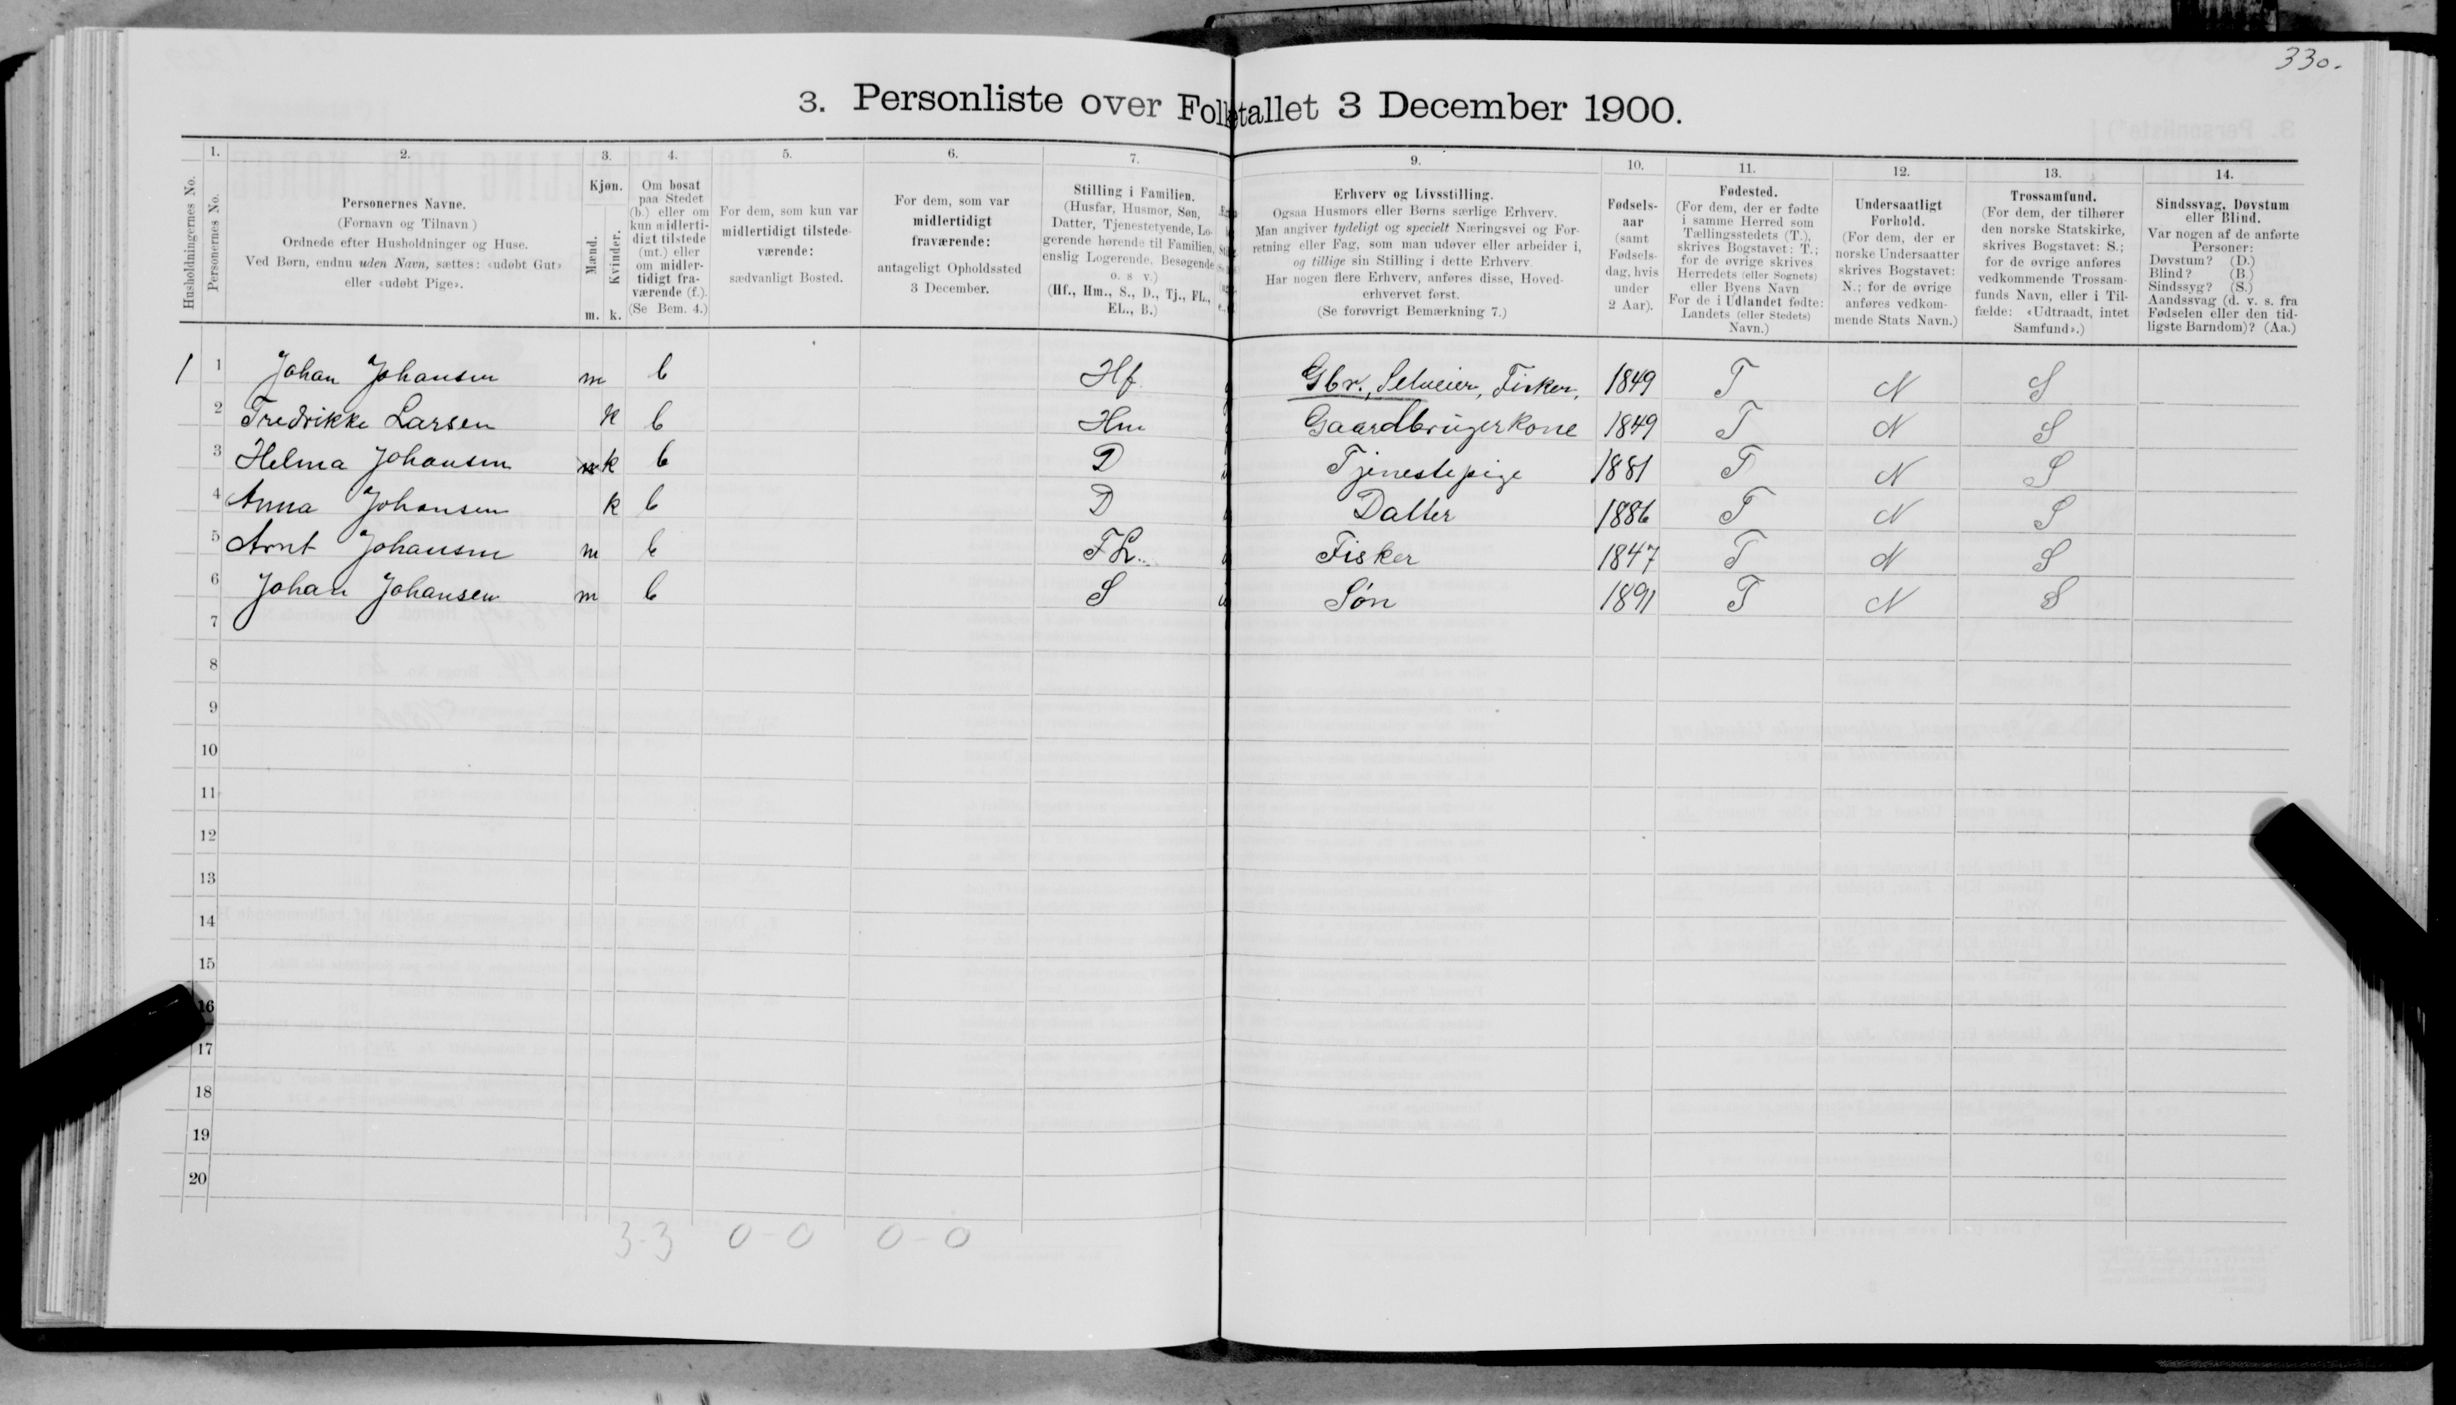 330.
3. Personliste over Folketallet 3 December 1900.
1. 2. 3. 4. 5. 6. 7. 9. 10. 11. 12. 13. 14.
Husholdningernes No.
Personernes No.
Personernes Navne.
(Fornavn og Tilnavn)
Ordnede efter Husholdninger og Huse.
Ved Børn, endnu uden Navn, sættes: «udøbt Gut»
eller «udøbt Pige».
Kjøn.
Mænd.
Kvinder.
m. k.
Om bosat
paa Stedet
(b.) eller om
kun midlerti-
digt tilstede
(mt.) eller
om midler-
tidigt fra-
værende (f.).
(Se Bem. 4.)
For dem, som kun var
midlertidigt tilstede-
værende:
sædvanligt Bosted.
For dem, som var
midlertidigt
fraværende:
antageligt Opholdssted
3 December.
Stilling i Familien.
(Husfar, Husmor, Søn,
Datter, Tjenestetyende, Lo-
gerende hørende til Familien,
enslig Logerende, Besøgende
o. s v.)
(Hf., Hm., S., D., Tj., FL.,
EL., B.)
Erhverv og Livsstilling.
Ogsaa Husmors eller Børns særlige Erhverv.
Man angiver tydeligt og specielt Næringsvei og For-
retning eller Fag, som man udøver eller arbeider i,
og tillige sin Stilling i dette Erhverv.
Har nogen flere Erhverv, anføres disse, Hoved-
erhvervet først.
(Se forøvrigt Bemærkning 7.)
Fødsels-
aar
(samt
Fødsels-
dag, hvis
under
2 Aar).
Fødested.
(For dem, der er fødte
i samme Herred som
Tællingsstedets (T.),
skrives Bogstavet: T.;
for de øvrige skrives
Herredets (eller Sognets)
eller Byens Navn
For de i Udlandet fødte:
Landets (eller Stedets)
Navn.)
Undersaatligt
Forhold.
(For dem, der er
norske Undersaatter
skrives Bogstavet:
N.; for de øvrige
anføres vedkom-
mende Stats Navn.)
Trossamfund.
(For dem, der tilhører
den norske Statskirke,
skrives Bogstavet: S.;
for de øvrige anføres
vedkommende Trossam-
funds Navn, eller i Til-
fælde: «Udtraadt, intet
Samfund».)
Sindssvag, Døvstum
eller Blind.
Var nogen af de anførte
Personer:
Døvstum? (D.)
Blind? (B.)
Sindssyg? (S.)
Aandssvag (d. v. s. fra
Fødselen eller den tid-
ligste Barndom)? (Aa.)
1 1 Johan Johansen m b Hf Gbr., Selveier, Fisker, 1849 T N S
2 Fredrikke Larsen k b Hm Gaardbrugerkone 1849 T N S
3 Helma Johansen k b D Tjenestepige 1881 T N S
4 Anna Johansen k b D Datter 1886 T N S
5 Arnt Johansen m b FL. Fisker 1847 T N S
6 Johan Johansen m b S Søn 1891 T N S
7
8
9
10
11
12
13
14
15
16
17
18
19
20
3-3 0-0 0-0